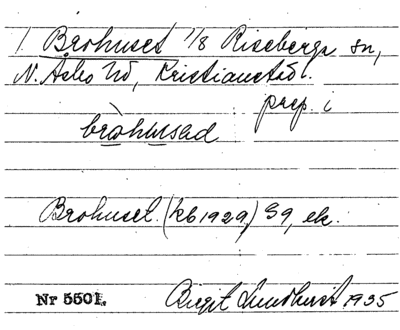 1 Brohuset 1/8 Riseberga sn,
N. Åsbo hd, Kristianstad l.
prep. i
bròhu̱sad
Brohuset (kb 1929) Gg, ek.
Nr 5501. Birgit Lundhvist 1935